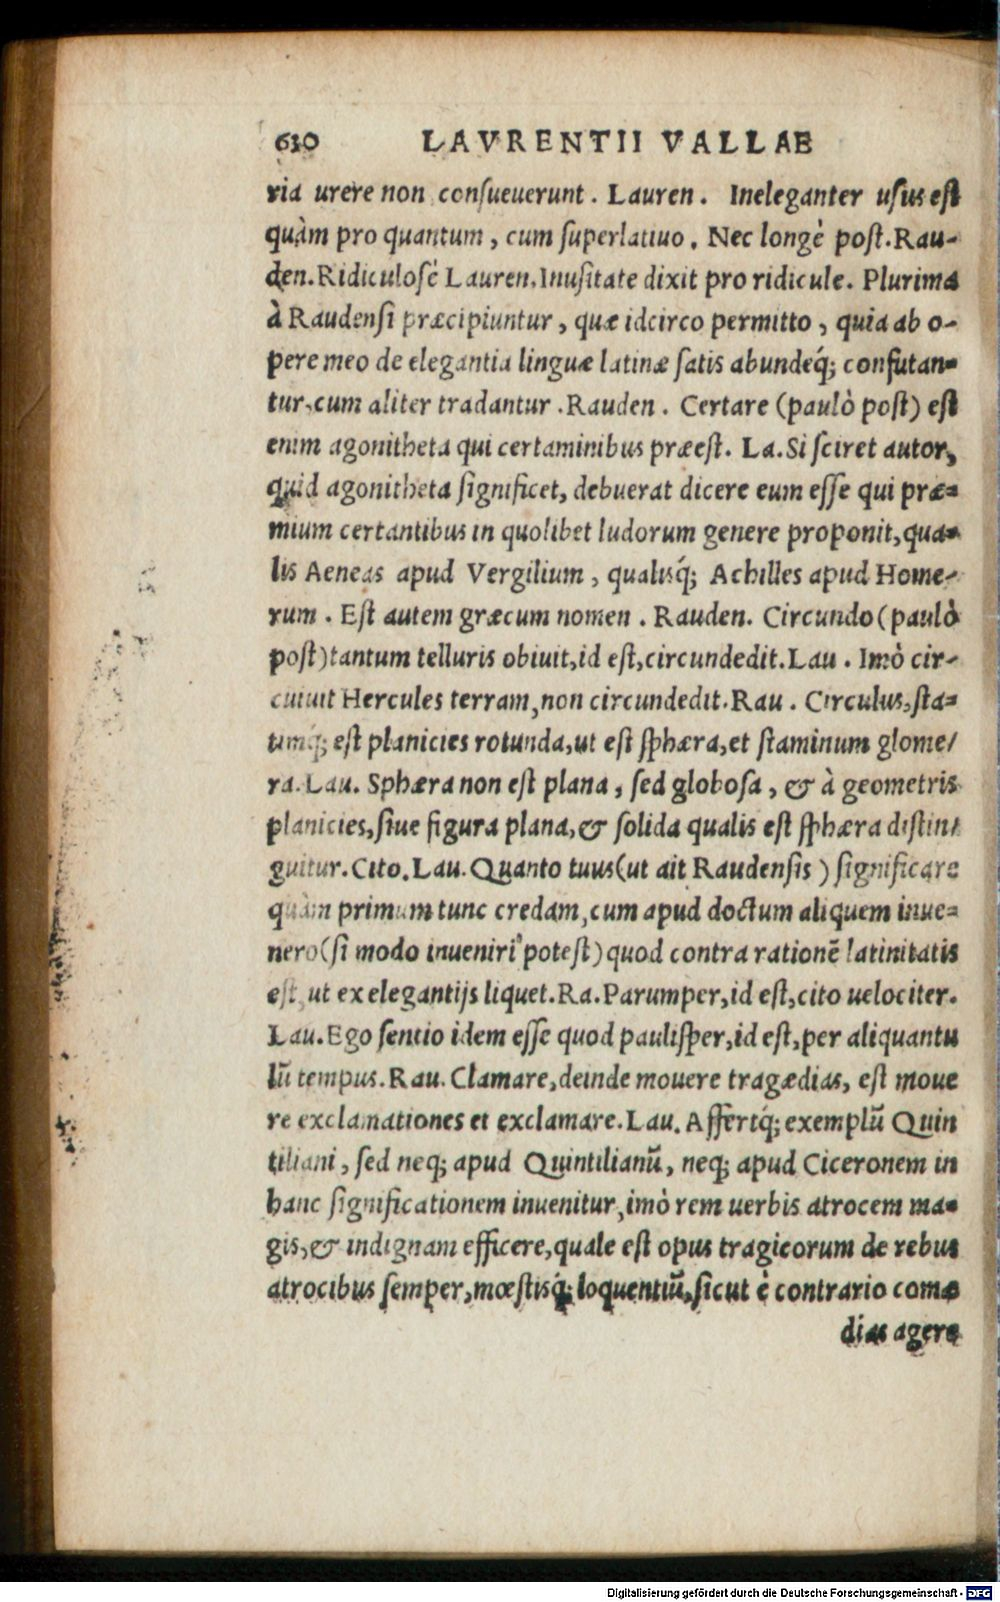 630 LAVRENTII VALLAE
ria urere non consueuerunt. Lauren. Ineleganter usus est
quàm pro quantum, cum superlatiuo. Nec longè post. Rau-
den. Ridiculosè Lauren. Inusitate dixit pro ridicule. Plurima
à Raudensi præcipiuntur, quæ idcirco permitto, quia ab o-
pere meo de elegantia linguæ latinæ satis abundeq́; confutan-
tur, cum aliter tradantur. Rauden. Certare (paulò post) est
enim agonitheta qui certaminibus præest. La. Si sciret autor,
quid agonitheta significet, debuerat dicere eum esse qui præ-
mium certantibus in quolibet ludorum genere proponit, qua-
lis Aeneas apud Vergilium, qualisq́; Achilles apud Home-
rum. Est autem græcum nomen. Rauden. Circundo (paulò
post) tantum telluris obiuit, id est, circundedit. Lau. Imò cir-
cuiuit Hercules terram, non circundedit. Rau. Circulus, sta-
tumq́; est planicies rotunda, ut est sphæra, et staminum glome/
ra. Lau. Sphæra non est plana, sed globosa, & à geometris
planicies, siue figura plana, & solida qualis est sphæra distin/
guitur. Cito. Lau. Quanto tuus (ut ait Raudensis) significare
quàm primum tunc credam, cum apud doctum aliquem inue-
nero (si modo inueniri potest) quod contra rationẽ latinitatis
est, ut ex elegantijs liquet. Ra. Parumper, id est, cito uelociter.
Lau. Ego sentio idem esse quod paulisper, id est, per aliquantu
lũ tempus. Rau. Clamare, deinde mouere tragædias, est moue
re exclamationes et exclamare. Lau. Affertq́; exemplũ Quin
tiliani, sed neq; apud Quintilianũ, neq; apud Ciceronem in
hanc significationem inuenitur, imò rem uerbis atrocem ma-
gis, & indignam efficere, quale est opus tragicorum de rebus
atrocibus semper, mœstisq́; loquentiũ, sicut è contrario comœ
dias agere
Digitalisierung gefördert durch die Deutsche Forschungsgemeinschaft - DFG